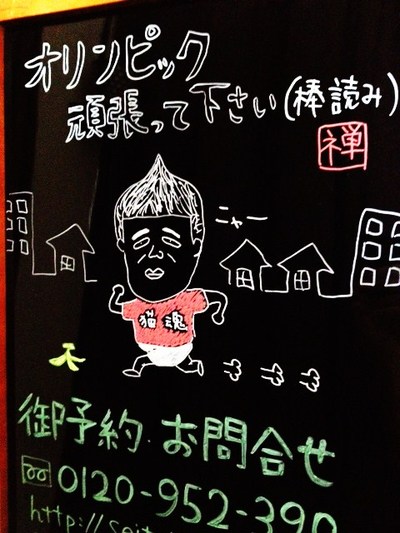 オリンピック
頑張って下さい(棒読み)
禅
ニャー
猫魂
御予約・お問合せ
0120-952-390